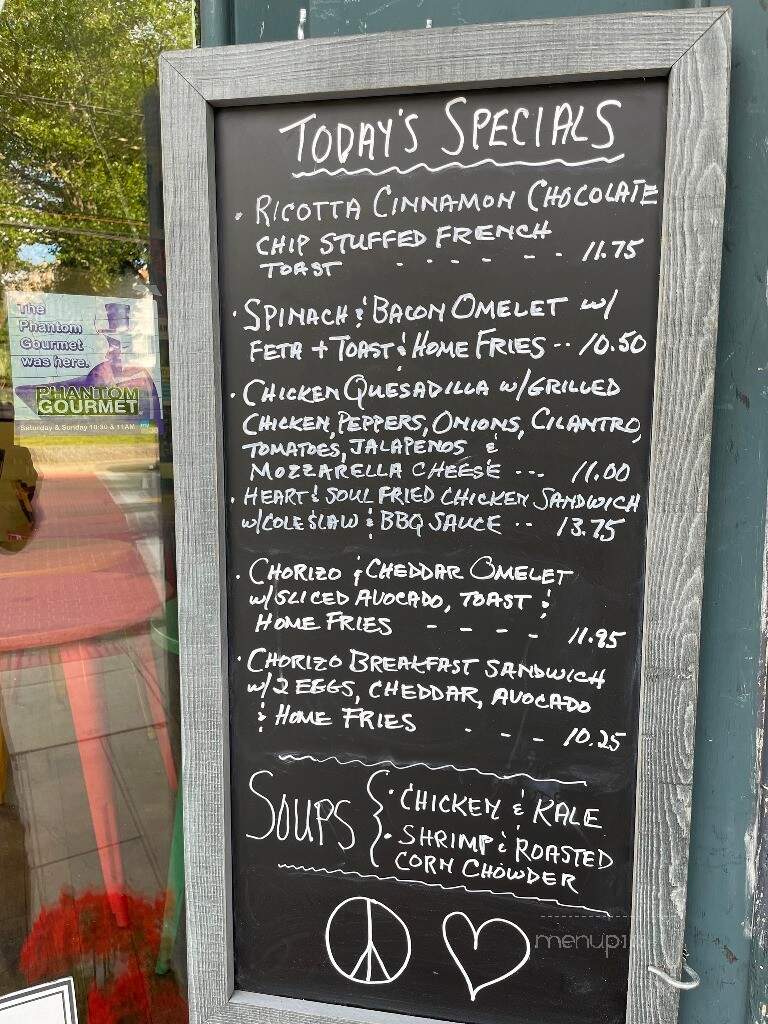 TODAY'S SPECIALS
• RICOTTA CINNAMON CHOCOLATE
CHIP STUFFED FRENCH
TOAST - - - - - - 11.75
• SPINACH & BACON OMELET W/
FETA + TOAST & HOME FRIES -- 10.50
• CHICKEN QUESADILLA W/GRILLED
CHICKEN, PEPPERS, ONIONS, CILANTRO,
TOMATOES, JALAPENOS &
MOZZARELLA CHEESE --- 11.00
• HEART & SOUL FRIED CHICKEN SANDWICH
W/COLESLAW & BBQ SAUCE -- 13.75
• CHORIZO & CHEDDAR OMELET
W/SLICED AVOCADO, TOAST &
HOME FRIES - - - - 11.95
• CHORIZO BREAKFAST SANDWICH
W/2 EGGS, CHEDDAR, AVOCADO
& HOME FRIES - - - 10.25
SOUPS
• CHICKEN & KALE
• SHRIMP & ROASTED
CORN CHOWDER
The
Phantom
Gourmet
was here.
PHANTOM
GOURMET
Saturday & Sunday 10:30 & 11AM